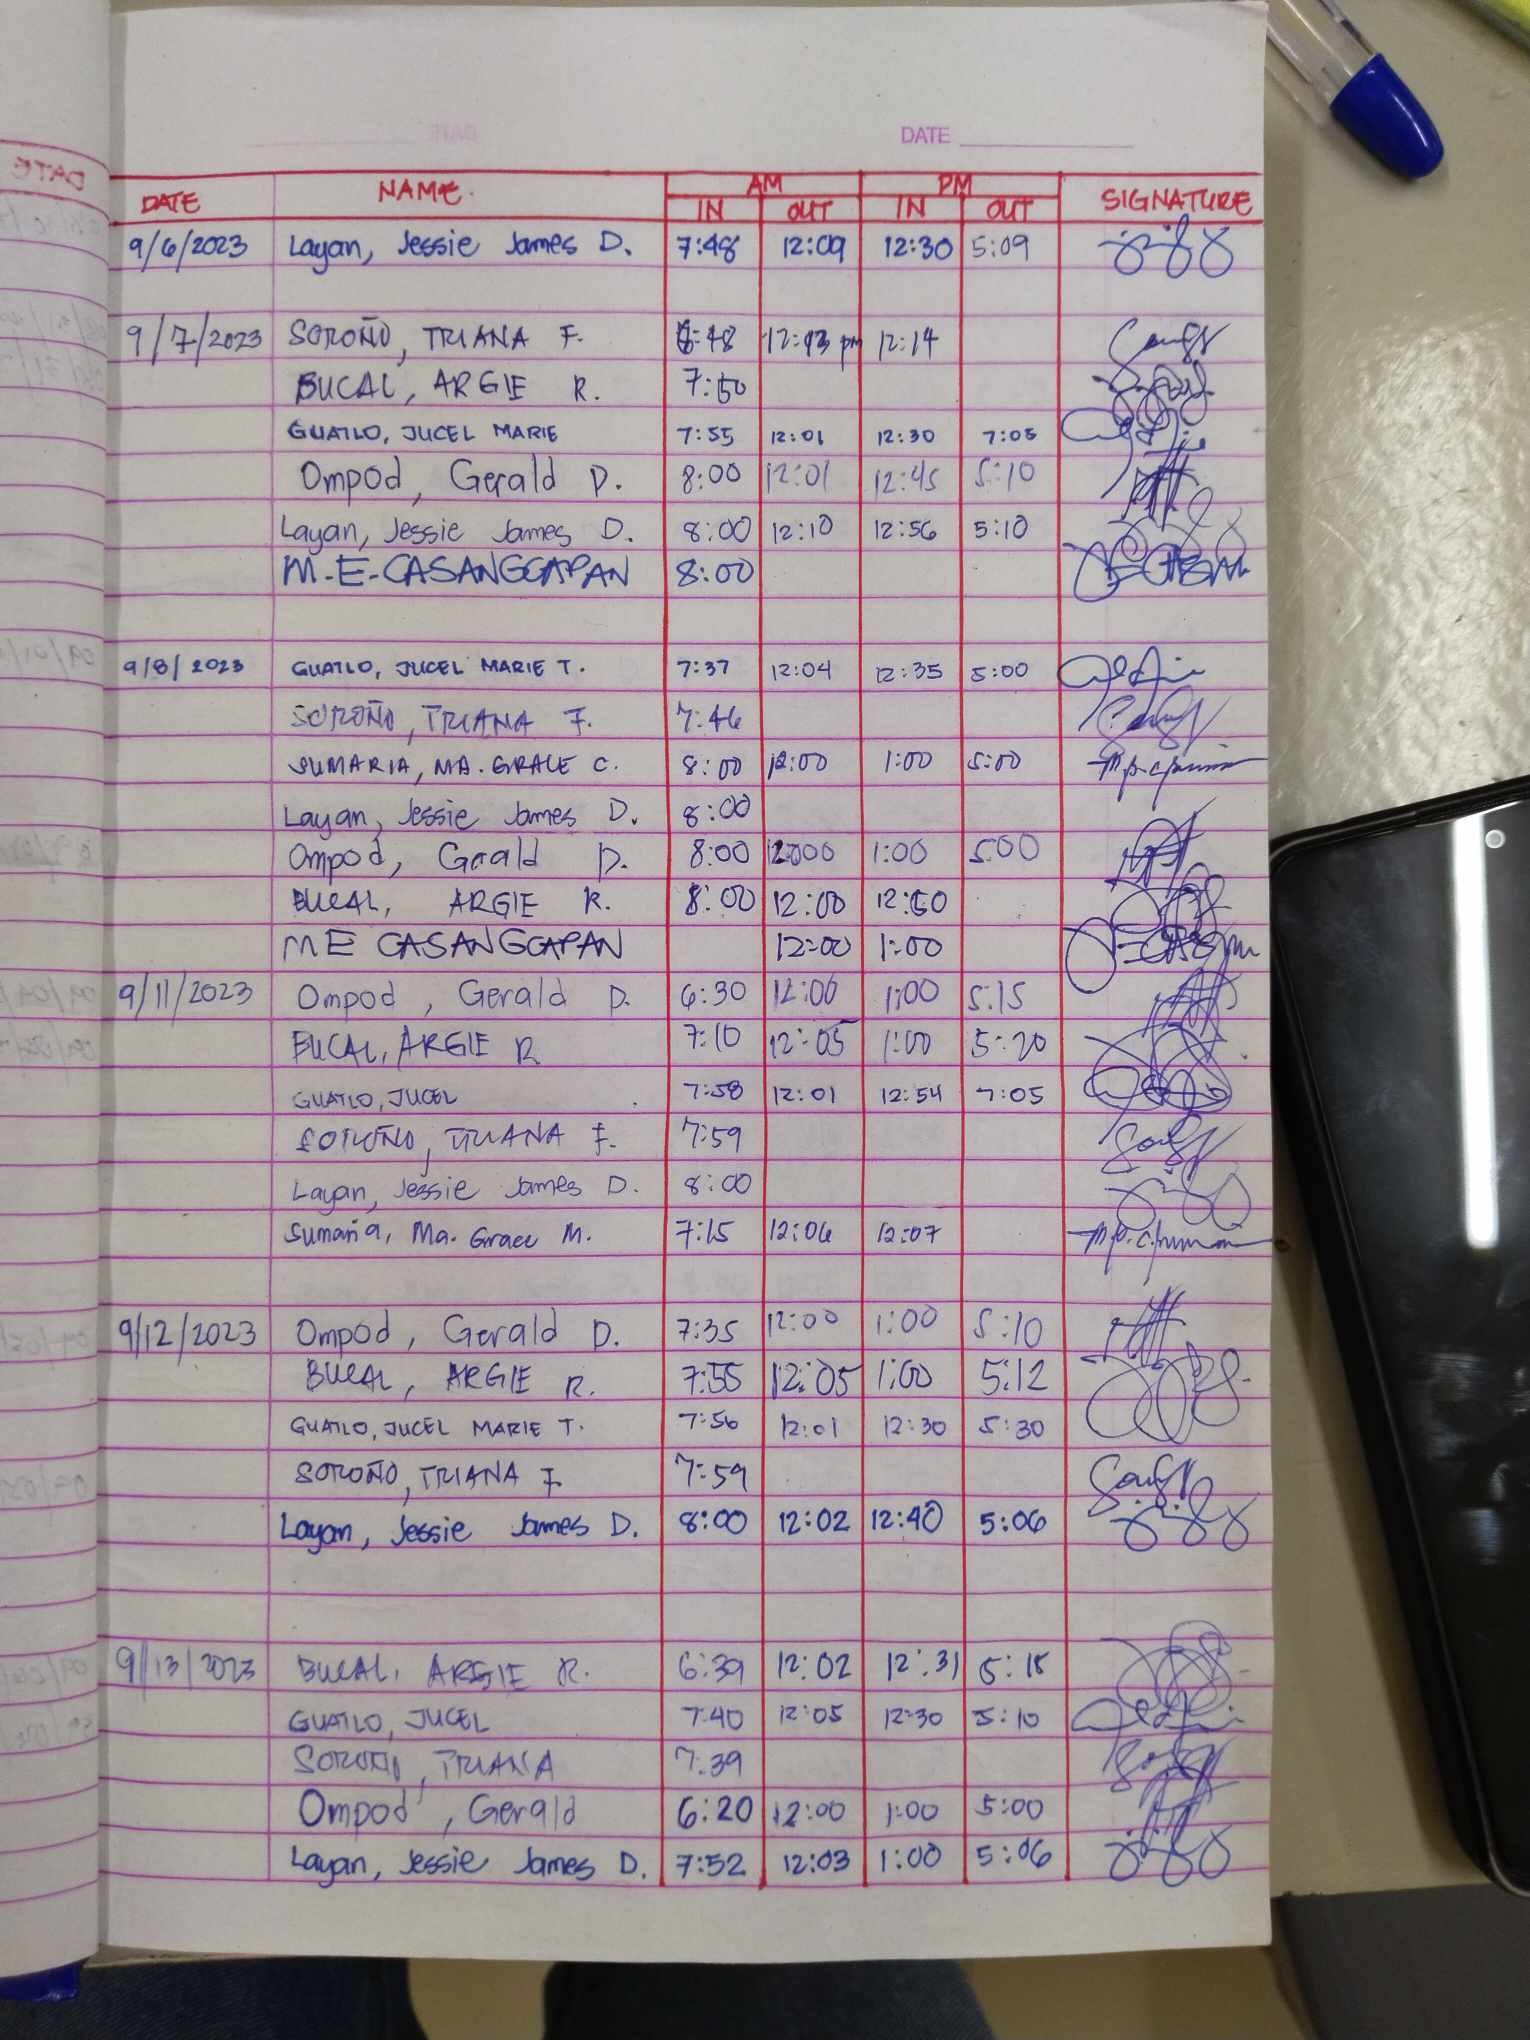 DATE
DATE NAME. AM PM SIGNATURE
IN OUT IN OUT
9/6/2023 Layan, Jessie James D. 7:48 12:09 12:30 5:09
9/7/2023 SOROÑO, TRIANA F. 12:14
BUCAL, ARGIE R. 7:50
GUATLO, JUCEL MARIE 7:55 12:01 12:30 7:05
Ompod, Gerald D. 8:00 12:01 12:45 5:10
Layan, Jessie James D. 8:00 12:10 12:56 5:10
M.E. CASANGCAPAN 8:00
9/8/2023 GUATLO, JUCEL MARIE T. 7:37 12:04 12:35 5:00
SOROÑO, TRIANA F. 7:46
SUMARIA, MA. GRACE C. 8:00 12:00 1:00 5:00
Layan, Jessie James D. 8:00
Ompod, Gerald D. 8:00 1:00 5:00
BUCAL, ARGIE R. 8:00 12:00 12:50
M E CASANGCAPAN 12:00 1:00
9/11/2023 Ompod, Gerald D. 6:30 12:00 1:00 5:15
BUCAL, ARGIE R 7:10 12:05 1:00 5:20
GUATLO, JUCEL 7:58 12:01 12:54 7:05
SOROÑO, TRIANA F. 7:59
Layan, Jessie James D. 8:00
Sumaria, Ma. Grace M. 7:15 12:06 12:07
9/12/2023 Ompod, Gerald D. 7:35 12:00 1:00 5:10
BUCAL, ARGIE R. 7:55 12:05 1:00 5:12
GUATLO, JUCEL MARIE T. 7:56 12:01 12:30 5:30
SOROÑO, TRIANA F 7:59
Layan, Jessie James D. 8:00 12:02 12:40 5:06
9/13/2023 BUCAL, ARGIE R. 6:39 12:02 12:31 5:15
GUATLO, JUCEL 7:40 12:05 12:30 5:10
SOROÑO, TRIANA 7:39
Ompod, Gerald 6:20 12:00 1:00 5:00
Layan, Jessie James D. 7:52 12:03 1:00 5:06